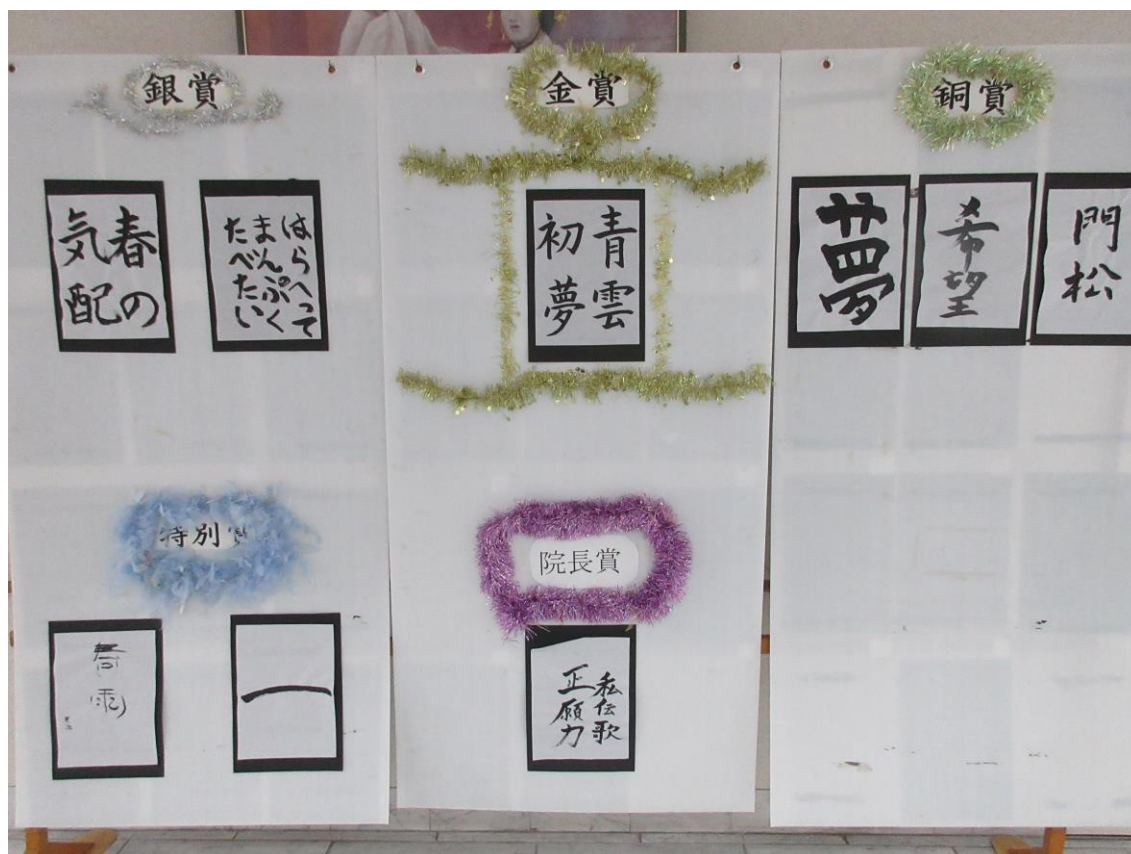 銀賞
春の
気配
はらへって
まんぷく
たべたい
金賞
青雲
初夢
銅賞
夢
希望
門松
特別賞
春雨
一
院長賞
私伝歌
正願力